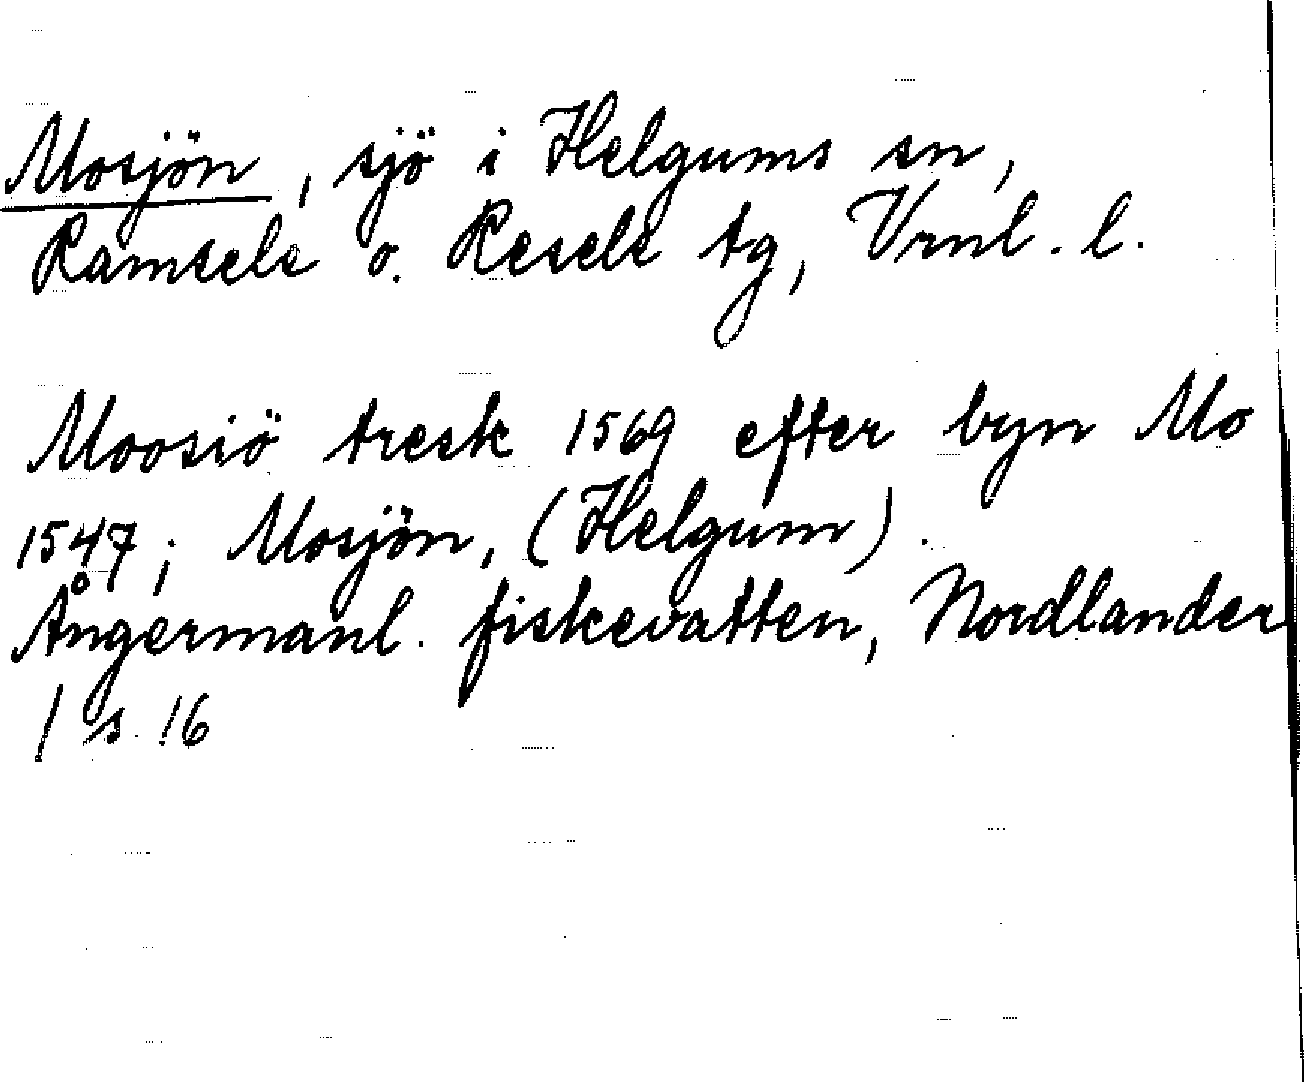 Mosjön, sjö i Helgums sn,
Ramsele o. Resele tg, Vrnl. l.
Moosiö tresk 1569 efter byn Mo
1547; Mosjön, (Helgum).
Ångermanl. fiskevatten, Nordlander
/ s. 16